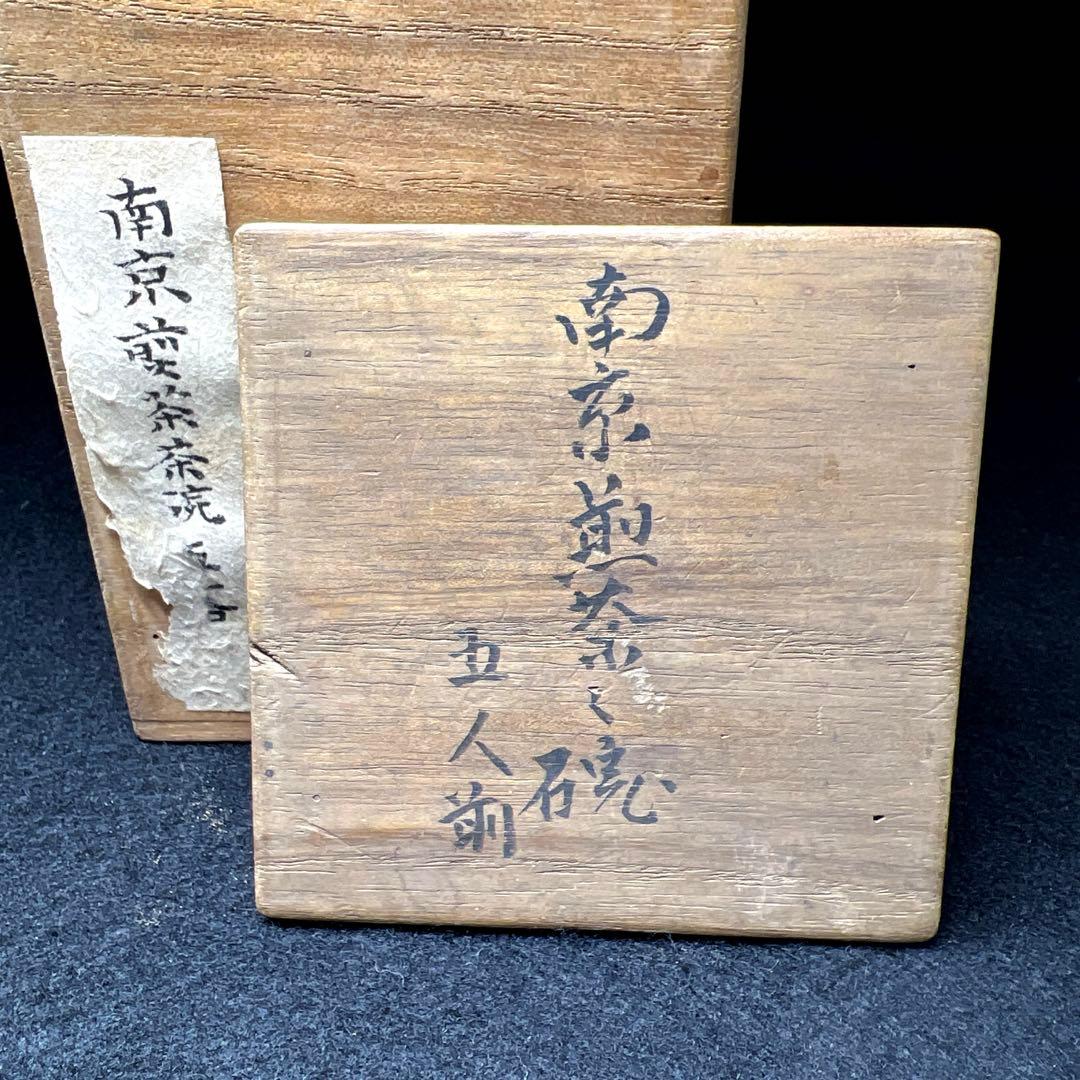 南京煎茶之碗
五人前
南京煎茶茶碗